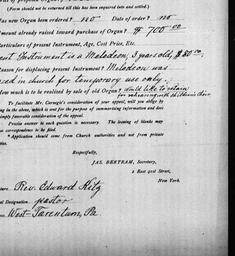 (Form should not be returned till this has been required data and settled.)
as new Organ been ordered? no Date of order? no
Amount already raised toward purchase of Organ? $700.00
Particulars of present Instrument, Age, Cost Price, Etc.
Instrument is a Melodeon, 3 years old, $80.00
Reason for displacing present Instrument? Melodeon was
in church for temporary use only.
much is to be realized by sale of old Organ? Would like to retain
for
To facilitate Mr. Carnegie's consideration of your appeal, will you oblige by
in the above, which is sent for the purpose of summarizing information and
simply favorable consideration of the appeal.
Precise answer to each question is necessary. The leaving of blanks may
correspondence to be filed.
* Application should come from Church authorities and not from private
Respectfully,
JAS. BERTRAM, Secretary,
2 East 91st Street,
New York.
Rev. Edward
Designation. pastor
West-Tarentum, Pa